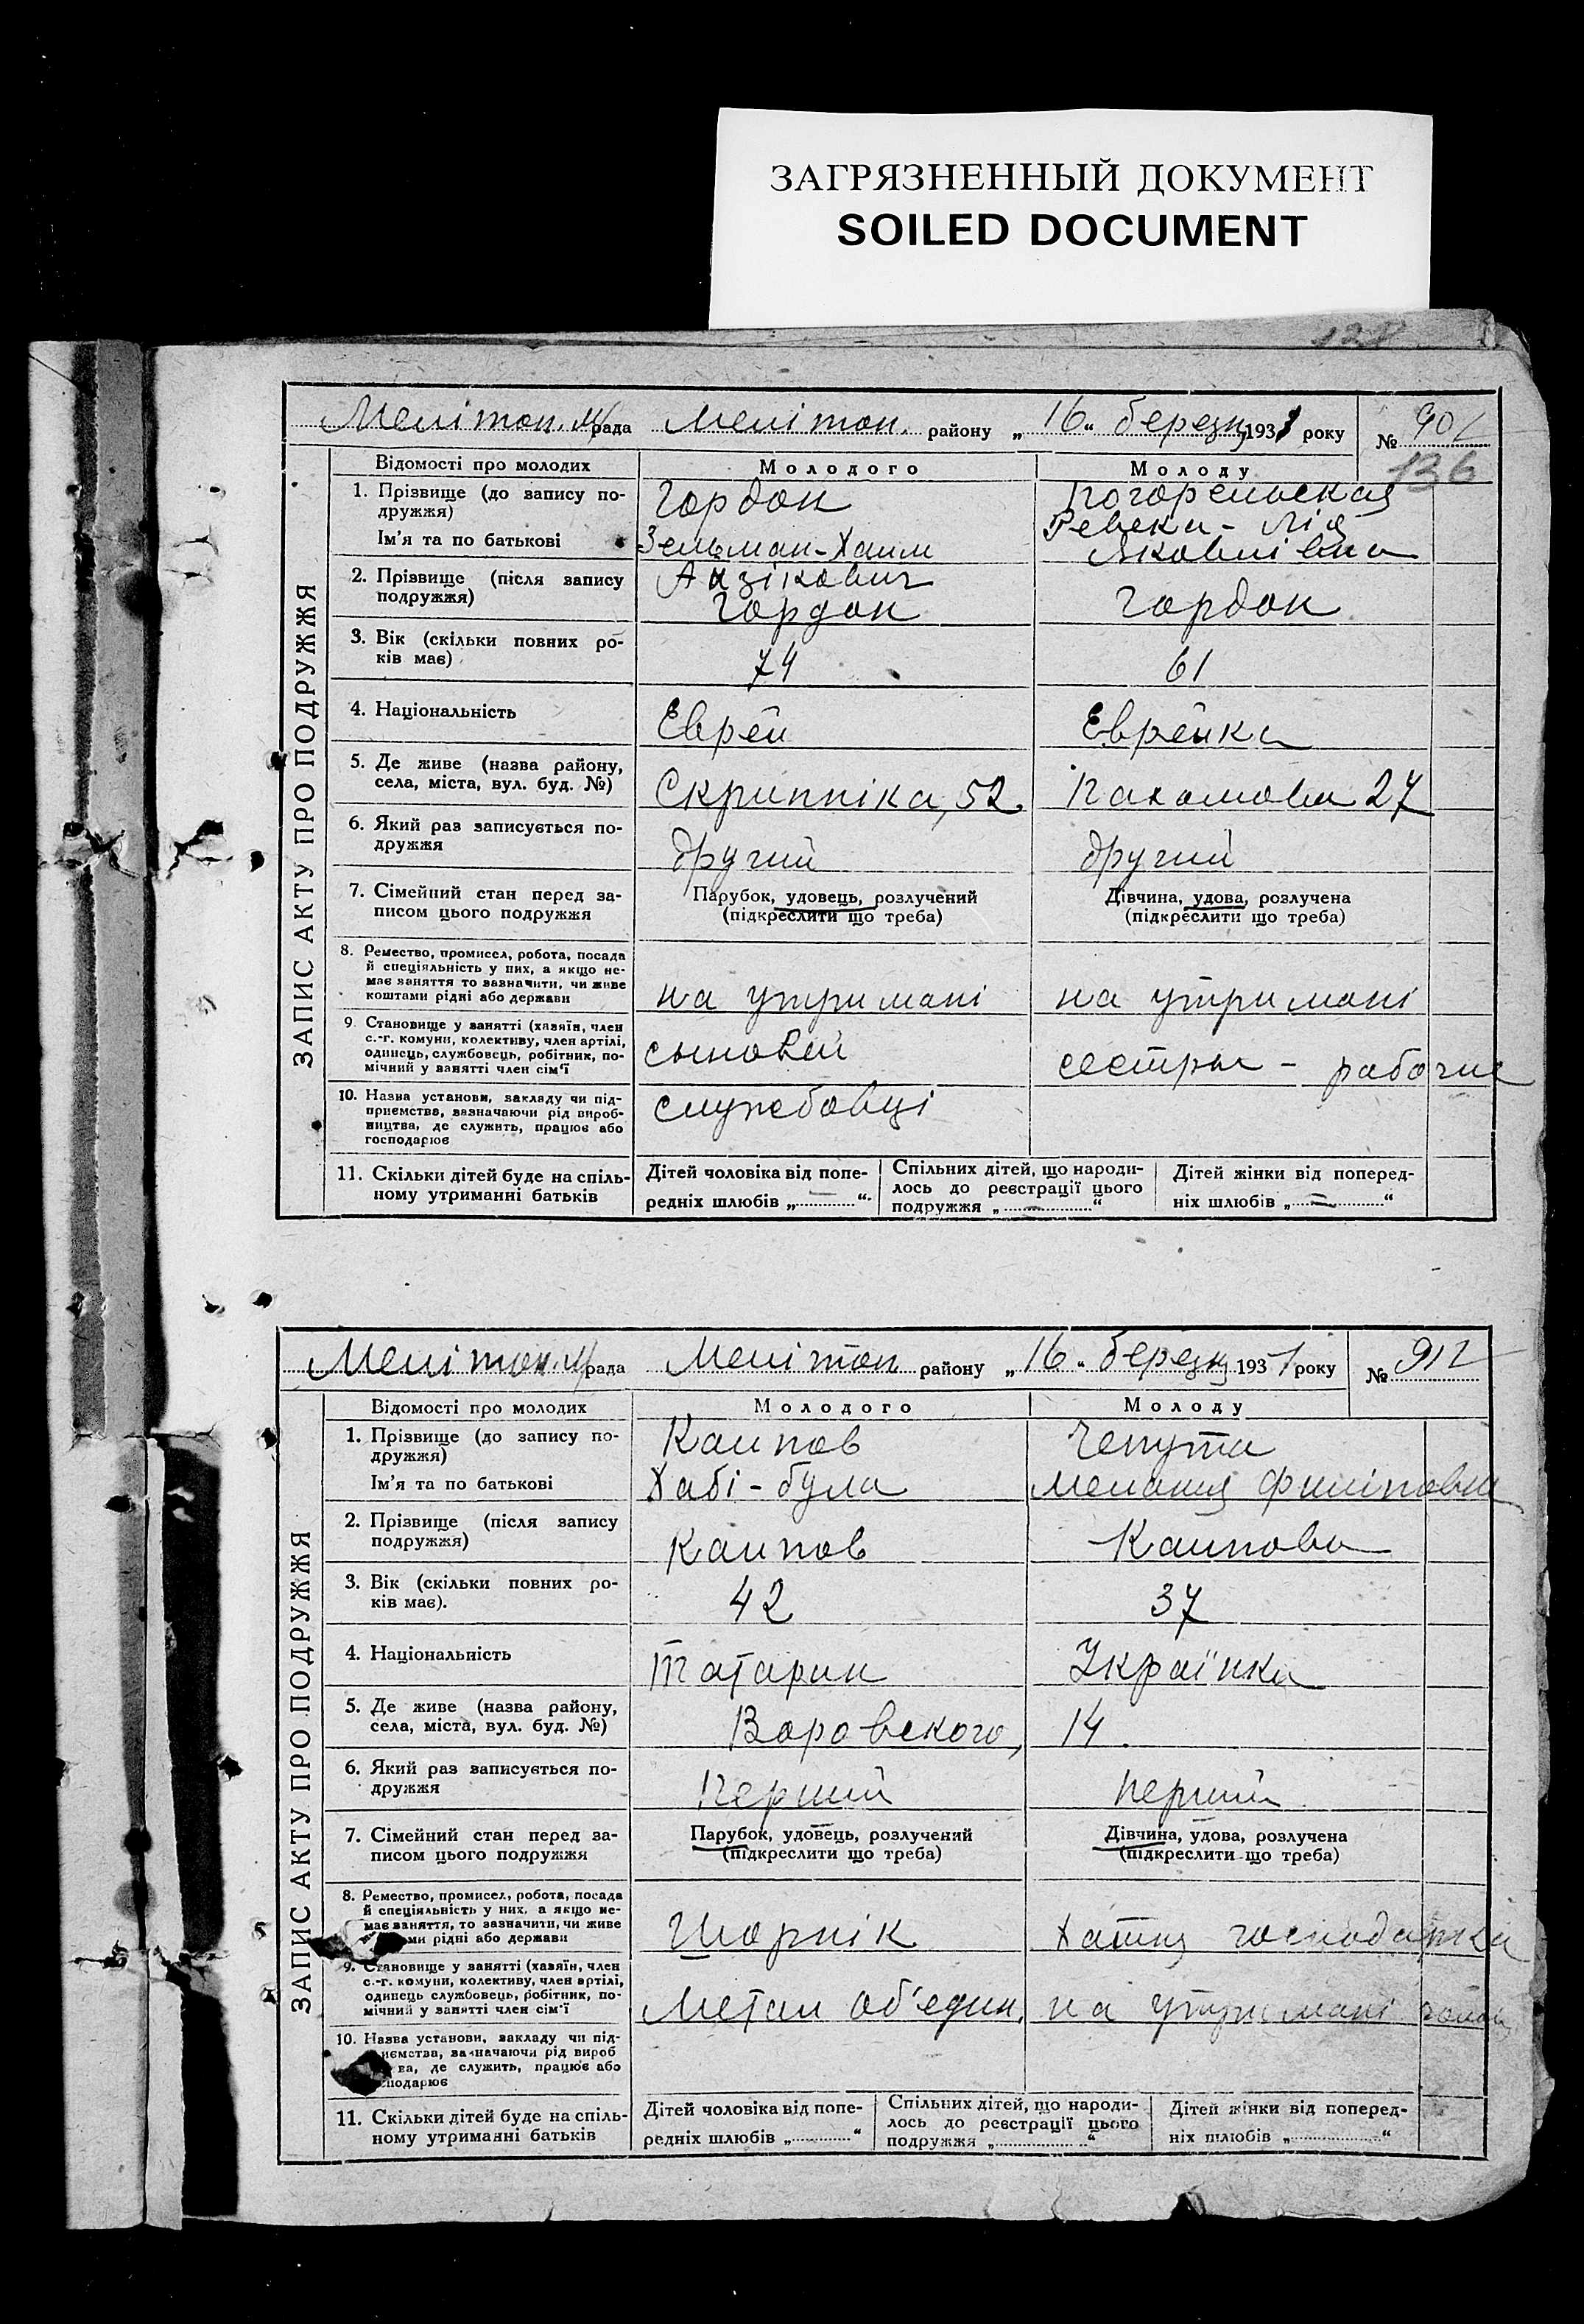 ЗАГРЯЗНЕННЫЙ ДОКУМЕНТ
SOILED DOCUMENT
ЗАПИС АКТУ ПРО ПОДРУЖЖЯ
Мелітоп. М/рада Мелітоп. району „16“ березня 1931 року № 90
136
Відомості про молодих Молодого Молоду
1. Прізвище (до запису по-
дружжя) Гордон Погорельская
Ім'я та по батькові Зельман-Хаим Ревека-Лія
Айзікович Яковлівна
2. Прізвище (після запису
подружжя) Гордон Гордон
3. Вік (скільки повних ро-
ків має) 74 61
4. Національність Еврей Еврейка
5. Де живе (назва району,
села, міста, вул. буд. №) Скрипніка, 52 Пахомова 27
6. Який раз записується по-
дружжя другий другий
7. Сімейний стан перед за-
писом цього подружжя
Парубок, удовець, розлучений
(підкреслити що треба)
Дівчина, удова, розлучена
(підкреслити що треба)
8. Ремество, промисел, робота, посада
й спеціяльність у них, а якщо не-
має заняття то зазначити, чи живе
коштами рідні або держави
на утримані на утримані
9 Становище у занятті (хазяїн, член
с.-г. комуни, колективу, член артілі,
одинець, службовець, робітник, по-
мічний у занятті член сім'ї
сыновей сестры - рабочие
10. Назва установи, закладу чи під-
приємства, зазначаючи рід вироб-
ництва, де служить, працює або
господарює
службовці
11. Скільки дітей буде на спіль-
ному утриманні батьків
Дітей чоловіка від попе-
редніх шлюбів „—“.
Спільних дітей, що народи-
лось до реєстрації цього
подружжя „—“
Дітей жінки від поперед-
ніх шлюбів „—“
ЗАПИС АКТУ ПРО ПОДРУЖЖЯ
Мелітоп. М/рада Мелітоп району „16“ березня 1931 року № 91
Відомості про молодих Молодого Молоду
1. Прізвище (до запису по-
дружжя) Каипов Чепута
Ім'я та по батькові Хабі-була Мелания Филіповна
2. Прізвище (після запису
подружжя) Каипов Каипова
3. Вік (скільки повних ро-
ків має). 42 37
4. Національність Татарин Українка
5. Де живе (назва району,
села, міста, вул. буд. №) Воровского, 14.
6. Який раз записується по-
дружжя Перший перший
7. Сімейний стан перед за-
писом цього подружжя
Парубок, удовець, розлучений
(підкреслити що треба)
Дівчина, удова, розлучена
(підкреслити що треба)
8. Ремество, промисел, робота, посада
й спеціяльність у них, а якщо не-
має заняття, то зазначити, чи живе
ми рідні або держави
Шорнік Хатня господарка
9. Становище у занятті (хазяїн, член
с.-г. комуни, колективу, член артілі,
одинець службовець, робітник, по-
мічний у занятті член сім'ї
Метал об'един. на утримані
10. Назва установи, закладу чи під-
иємства, зазначаючи рід вироб
ва, де служить, працює або
сподарює
11. Скільки дітей буде на спіль-
ному утриманні батьків
Дітей чоловіка від попе-
редніх шлюбів „“
Спільних дітей, що народи-
лось до реєстрації цього
подружжя „“
Дітей жінки від поперед-
ніх шлюбів „“